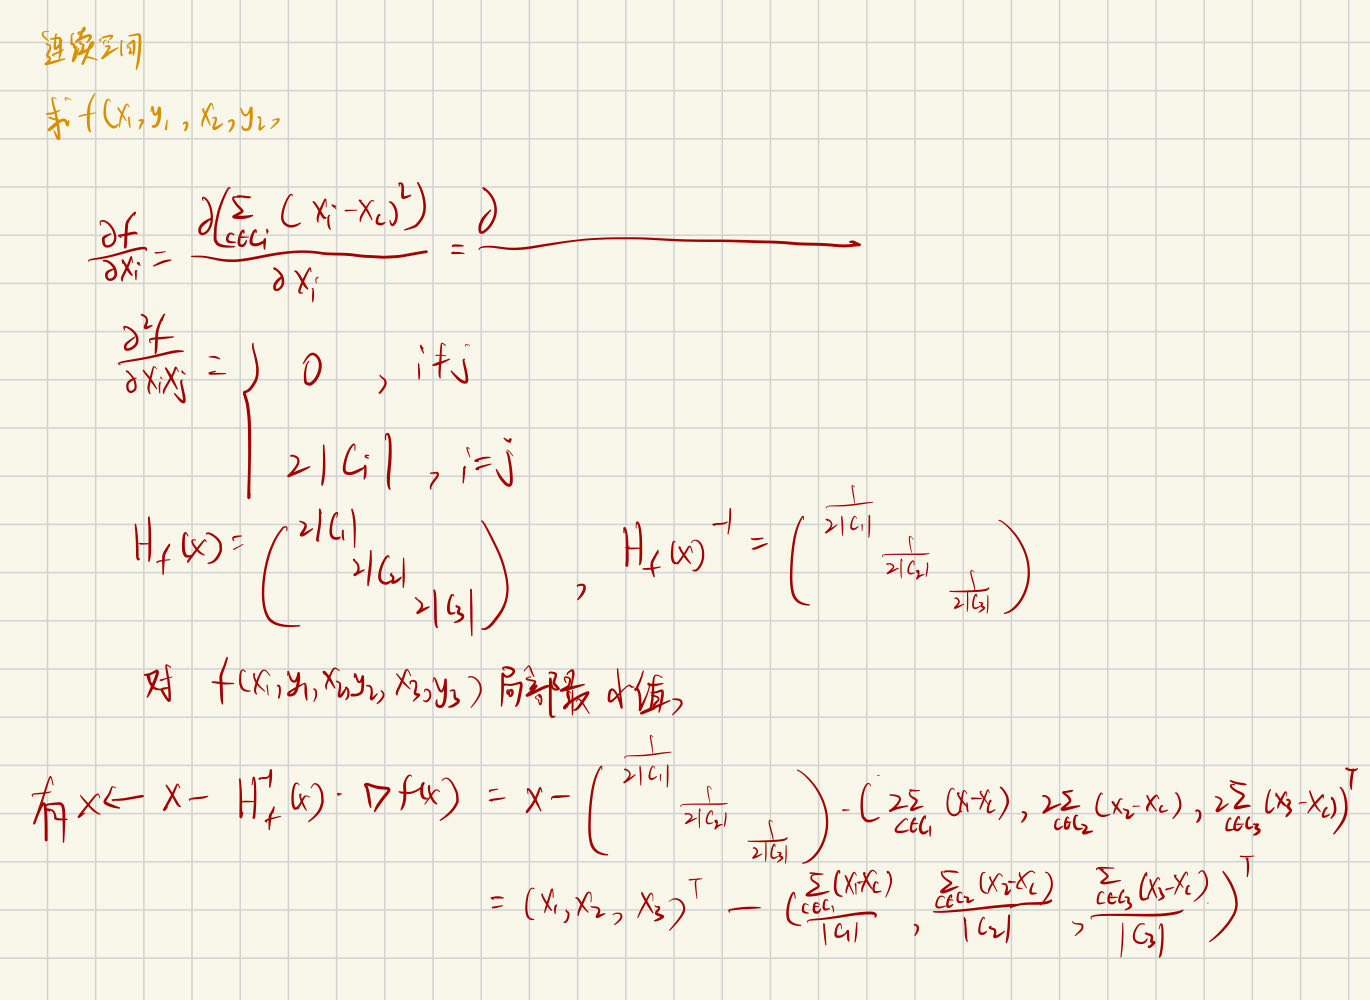 连续空间
求 f(x₁, y₁, x₂, y₂,
∂f/∂xᵢ = ∂(∑_{c∈Cᵢ} (xᵢ - x_c)²)/∂xᵢ = ∂
∂²f/∂xᵢxⱼ = { 0 , i≠j
2|Cᵢ| , i=j
H_f(x) = ( 2|C₁| 2|C₂| 2|C₃| ) , H_f(x)⁻¹ = ( 1/2|C₁| 1/2|C₂| 1/2|C₃| )
对 f(x₁, y₁, x₂, y₂, x₃, y₃) 局部最小值,
有 x ← x - H_f⁻¹(x) · ∇f(x) = x - ( 1/2|C₁| 1/2|C₂| 1/2|C₃| ) · ( 2∑_{c∈C₁} (x₁-x_c), 2∑_{c∈C₂} (x₂-x_c), 2∑_{c∈C₃} (x₃-x_c) )ᵀ
= (x₁, x₂, x₃)ᵀ - ( ∑_{c∈C₁} (x₁-x_c)/|C₁| , ∑_{c∈C₂} (x₂-x_c)/|C₂| , ∑_{c∈C₃} (x₃-x_c)/|C₃| )ᵀ